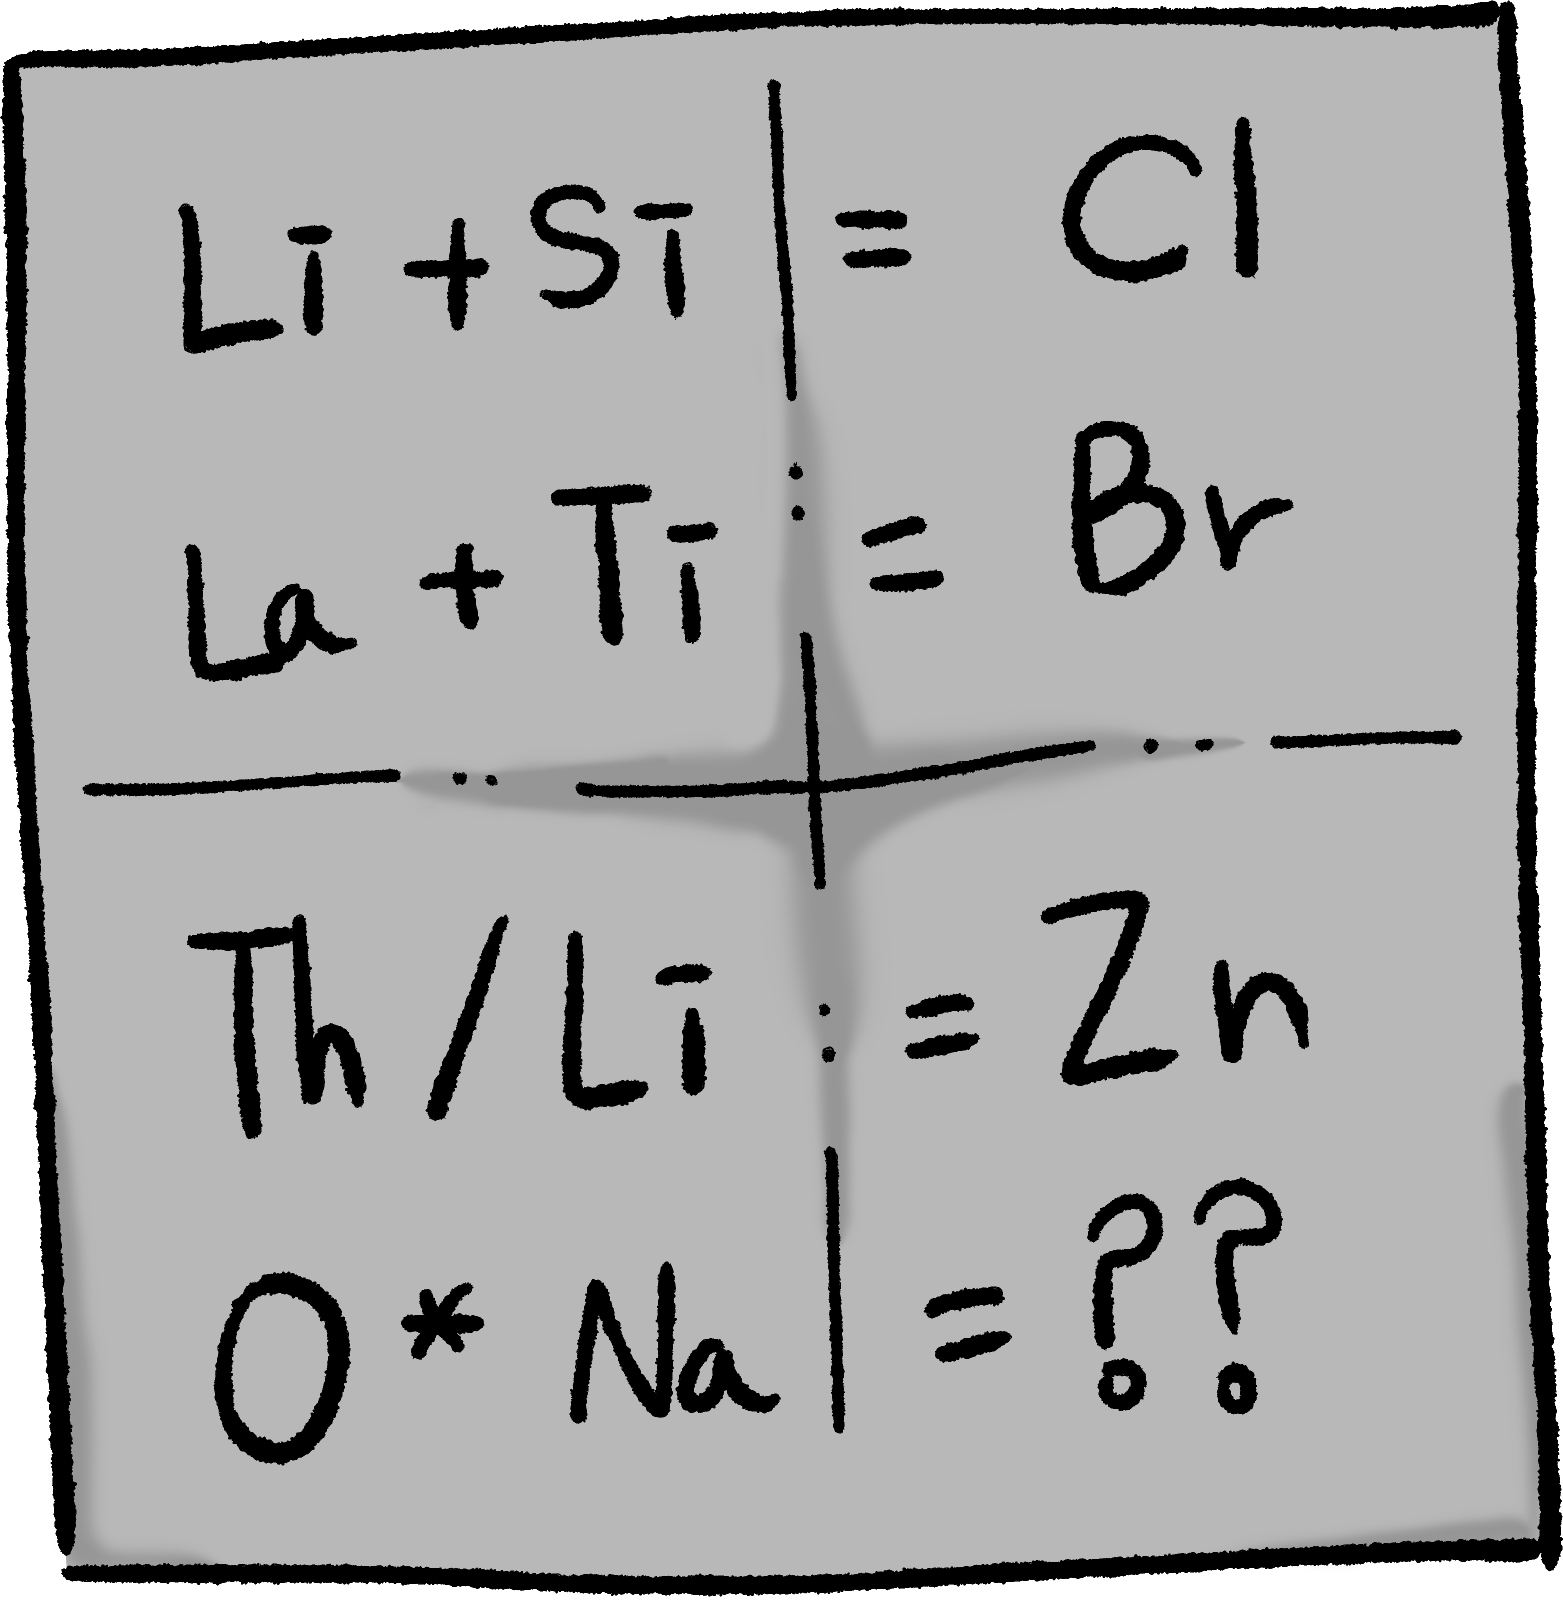 Li + Si = Cl
La + Ti = Br
Th / Li = Zn
O * Na = ??